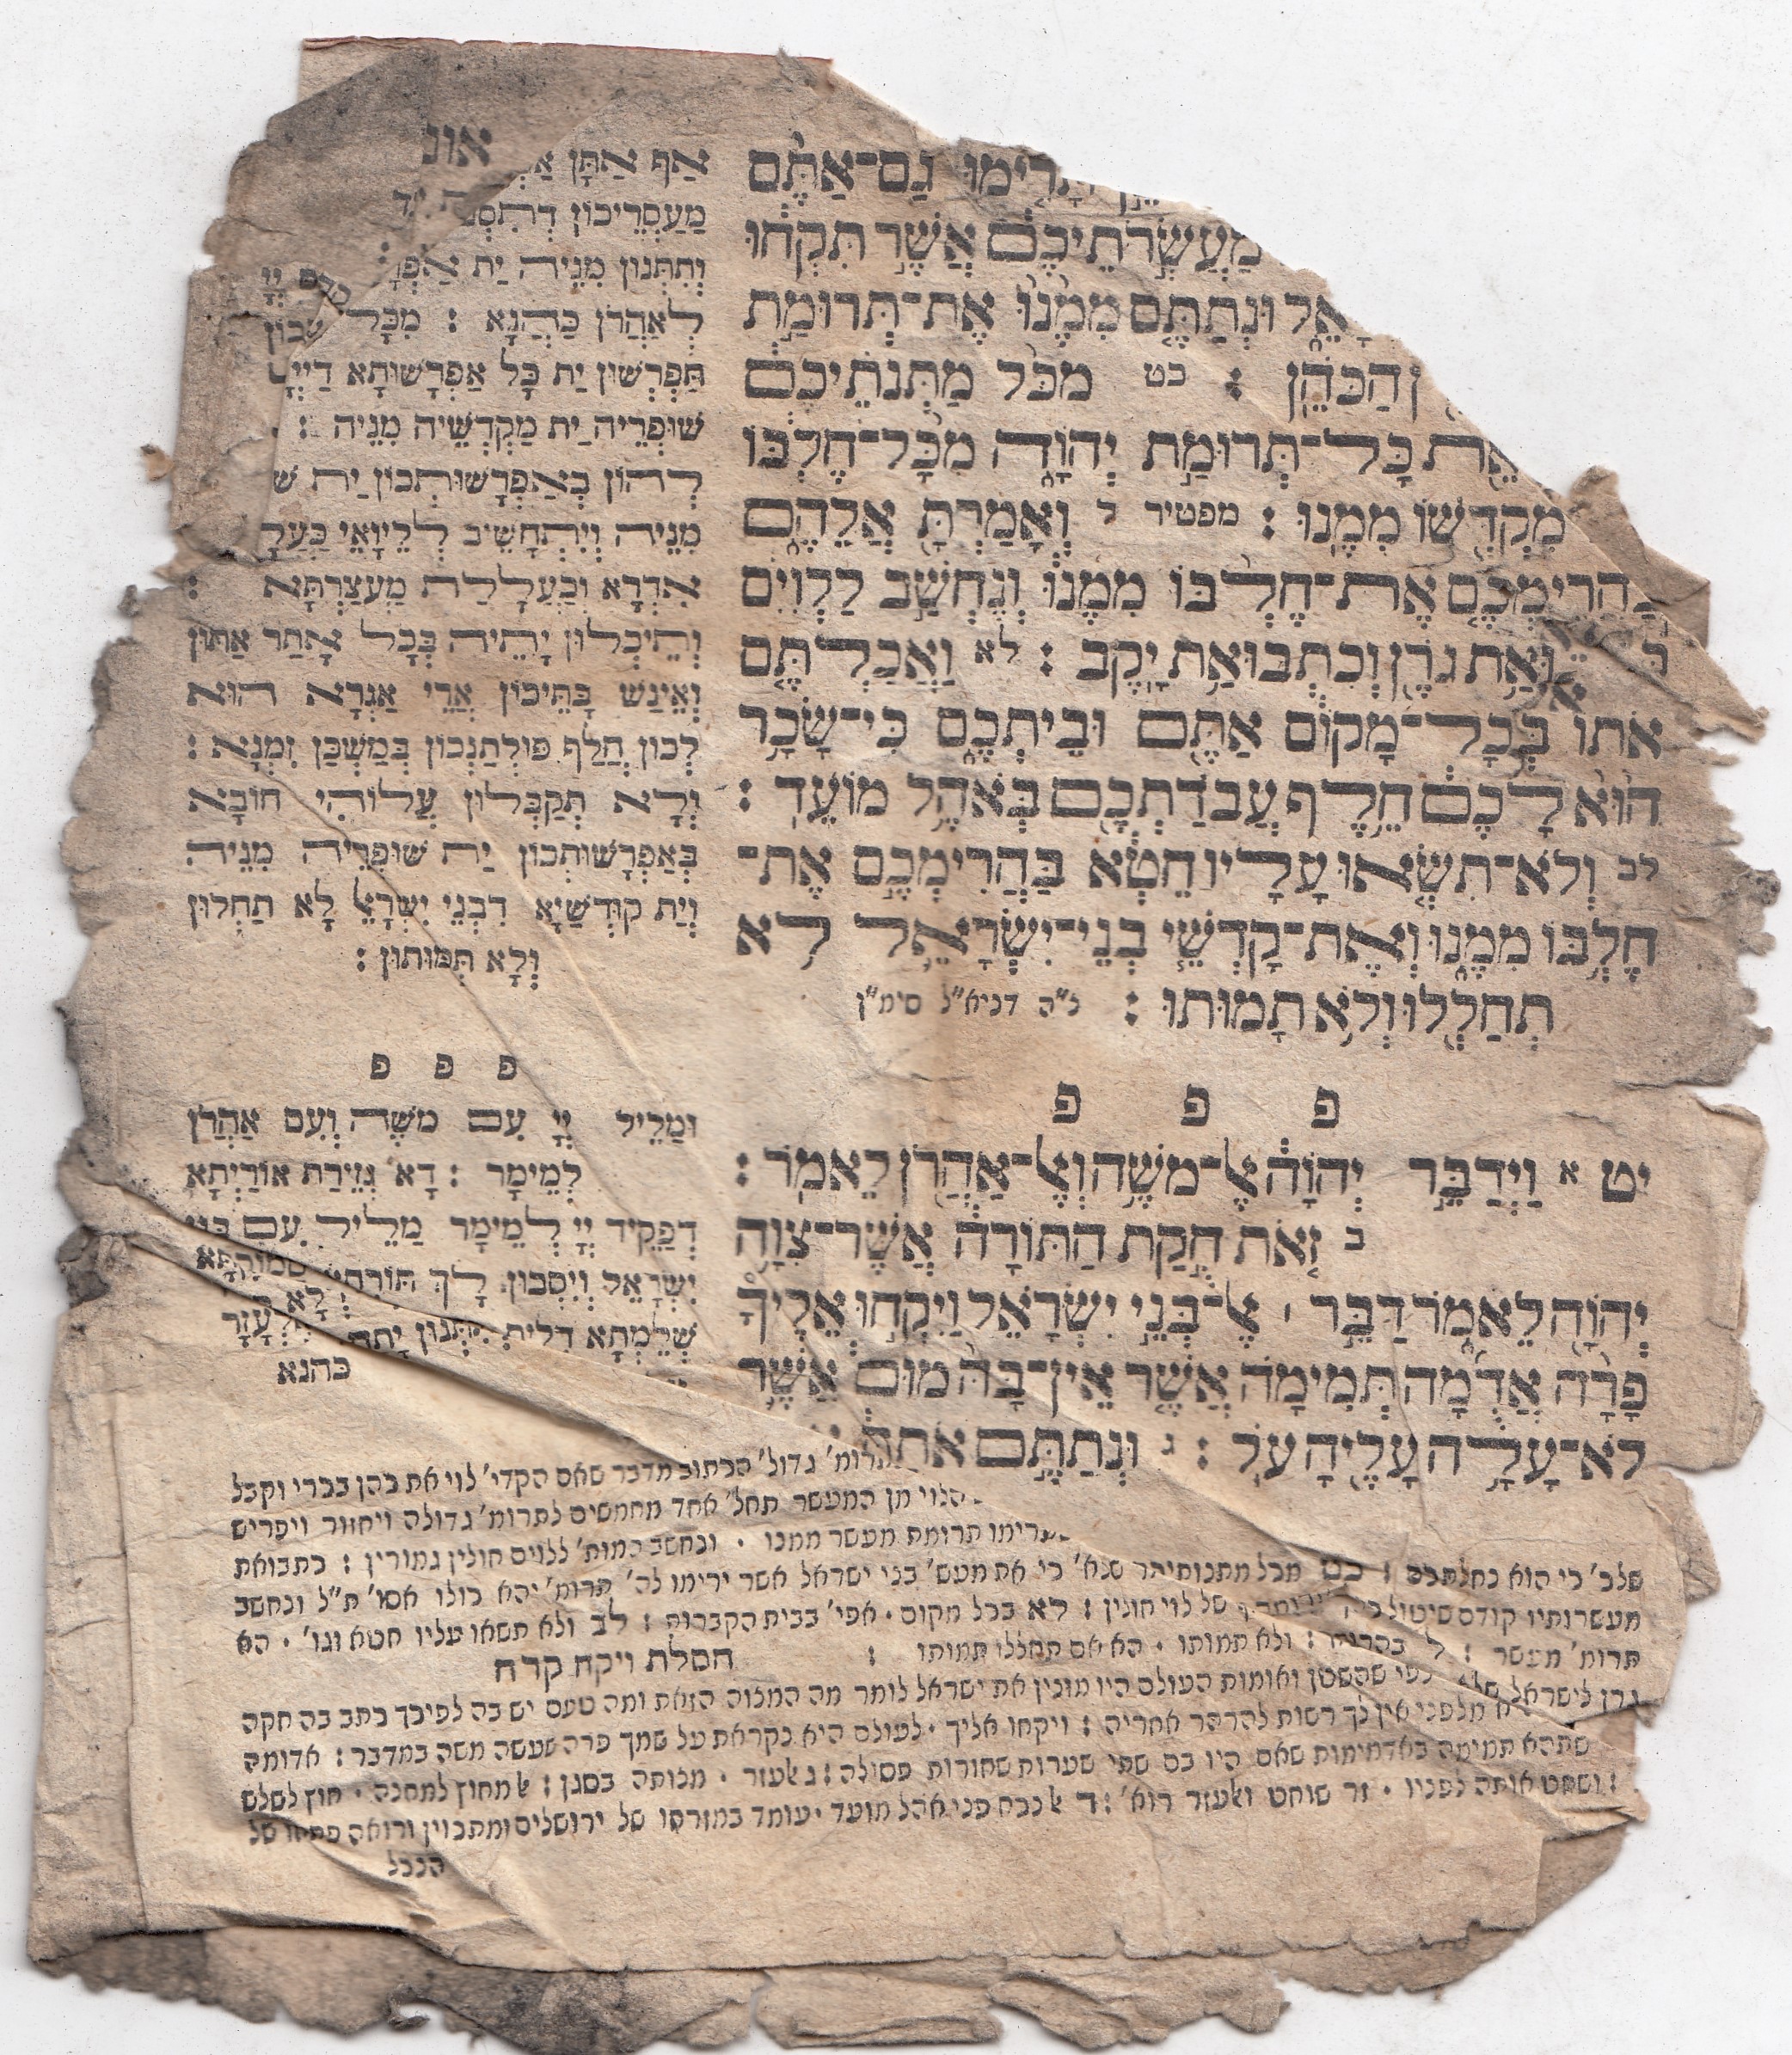 תָּרִימוּ גַם־אַתֶּם
מַעְשְׂרֹתֵיכֶם אֲשֶׁר תִּקְחוּ
וּנְתַתֶּם מִמֶּנּוּ אֶת־תְּרוּמַת
הַכֹּהֵן : כט מִכֹּל מַתְּנֹתֵיכֶם
אֵת כָּל־תְּרוּמַת יְהוָֹה מִכָּל־חֶלְבּוֹ
מִקְדְּשׁוֹ מִמֶּנּוּ : מפטיר ל וְאָמַרְתָּ אֲלֵהֶם
בַּהֲרִימְכֶם אֶת־חֶלְבּוֹ מִמֶּנּוּ וְנֶחְשַׁב לַלְוִיִּם
גֹּרֶן וְכִתְבוּאַת יָקֶב : לא וַאֲכַלְתֶּם
אֹתוֹ בְּכָל־מָקוֹם אַתֶּם וּבֵיתְכֶם כִּי־שָׂכָר
הוּא לָכֶם חֵלֶף עֲבֹדַתְכֶם בְּאֹהֶל מוֹעֵד :
לב וְלֹא־תִשְׂאוּ עָלָיו חֵטְא בַּהֲרִימְכֶם אֶת־
חֶלְבּוֹ מִמֶּנּוּ וְאֶת־קָדְשֵׁי בְנֵי־יִשְׂרָאֵל לֹא
תְחַלְּלוּ וְלֹא תָמוּתוּ : צ״ה דניא״ל סימ״ן
פ פ פ
יט א וַיְדַבֵּר יְהוָֹה אֶל־מֹשֶׁה וְאֶל־אַהֲרֹן לֵאמֹר :
ב זֹאת חֻקַּת הַתּוֹרָה אֲשֶׁר־צִוָּה
יְהוָֹה לֵאמֹר דַּבֵּר ׀ אֶל־בְּנֵי יִשְׂרָאֵל וְיִקְחוּ אֵלֶיךָ
פָרָה אֲדֻמָּה תְּמִימָה אֲשֶׁר אֵין־בָּהּ מוּם אֲשֶׁר
לֹא־עָלָה עָלֶיהָ עֹל : ג וּנְתַתֶּם אֹתָהּ
אַף אַתָּן
מַעַסְרֵיכוֹן
וְתִתְּנוּן מִנֵּיהּ יַת
לְאַהֲרֹן כַּהֲנָא : מִכָּל
תַּפְרְשׁוּן יַת כָּל אַפְרָשׁוּתָא דַיְיָ
שׁוּפְרֵיהּ יַת מַקְדְּשֵׁיהּ מִנֵּיהּ :
לְהוֹן בְּאַפְרָשׁוּתְכוֹן יַת
מִנֵּיהּ וְיִתְחָשֵׁיב לְלֵיוָאֵי
אִדְּרָא וְכַעֲלָלַת מַעְצַרְתָּא :
וְתֵיכְלוּן יָתֵיהּ בְּכָל אֲתַר אַתּוּן
וְאֵינַשׁ בָּתֵּיכוֹן אֲרֵי אַגְרָא הוּא
לְכוֹן חֲלַף פּוּלְחַנְכוֹן בְּמַשְׁכַּן זִמְנָא :
וְלָא תְקַבְּלוּן עֲלוֹהִי חוֹבָא
בְּאַפְרָשׁוּתְכוֹן יַת שׁוּפְרֵיהּ מִנֵּיהּ
וְיַת קוּדְשַׁיָּא דִבְנֵי יִשְׂרָאֵל לָא תַחְלוּן
וְלָא תְמוּתוּן :
פ פ פ
וּמַלֵּיל יְיָ עִם מֹשֶׁה וְעִם אַהֲרֹן
לְמֵימָר : דָא גְזֵירַת אוֹרַיְתָא
דְפַקֵּיד יְיָ לְמֵימָר מַלֵּיל עִם בְּנֵי
יִשְׂרָאֵל וְיִסְבוּן לָךְ
שְׁלֶמְתָּא דְלֵית
כהנא
תרומ׳ גדול׳ הכתוב מדבר שאם הקדי׳ לוי את כהן בכרי וקבל
הלוי מן המעשר תחל׳ אחד מחמשים לתרומ׳ גדולה ויחזור ויפריש
תרומת מעשר ממנו · ונחשב המות׳ ללוים חולין גמורין : כתבואת
שלב׳ כי הוא נחלתכם : כט מכל מתנותיכם שנא׳ כי את מעש׳ בני ישראל אשר ירימו לה׳ תרומ׳ יהא כולו אסו׳ ת״ל ונחשב
מעשרותיו קודם שיטול של לוי חולין : לא בכל מקום · אפי׳ בבית הקברות : לב ולא תשאו עליו חטא וגו׳ · הא
תרומ׳ מעשר : ל ולא תמותו · הא אם תחללו תמותו :
חסלת ויקח קרח
לפי שהשטן ואומות העולם היו מונין את ישראל לומר מה המצוה הזאת ומה טעם יש בה לפיכך כתב בה חקה
מלפני אין לך רשות להרהר אחריה : ויקחו אליך · לעולם היא נקראת על שמך פרה שעשה משה במדבר : אדומה
שתהא תמימה באדמימות שאם היו בם שתי שערות שחורות פסולה : ג אלעזר · מצותה בסגן : אל מחוץ למחנה · חוץ לשלש
ושחט אותה לפניו · זר שוחט ואלעזר רוא׳ : ד אל נכח פני אהל מועד · עומד במזרחו של ירושלים ומתכוין ורואה פתחו של
ההיכל